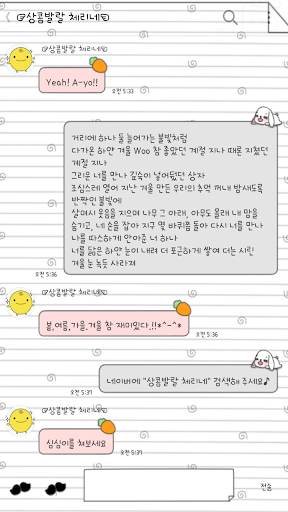 ☞상콤발랄 체리네☜
☞상콤발랄 체리네☜
Yeah! A-yo!!
오전 5:33
거리에 하나 둘 늘어가는 불빛처럼
다가온 하얀 겨울 Woo 참 좋았던 계절 지나 때론 지쳤던
계절 지나
그리운 너를 만나 깊숙이 넣어뒀던 상자
조심스레 열어 지난 겨울 만든 우리의 추억 꺼내 밤새도록
반짝인 불빛에
살며시 웃음을 지으며 나무 그 아래, 아무도 몰래 내 맘을
숨기고, 네 손을 잡아 지구 몇 바퀴를 돌아 다시 너를 만나
나를 따스하게 안아준 너 하나
너를 닮은 하얀 눈이 내려 더 포근하게 쌓여 더는 시린
겨울 눈 녹듯 사라져
오전 5:36
☞상콤발랄 체리네☜
봄,여름,가을,겨울 참 재미있다.!!*^-^*
오전 5:36
네이버에 "상콤발랄 체리네" 검색해 주세요♪
오전 5:37
☞상콤발랄 체리네☜
심심이를 쳐보세요
오전 5:37
전송